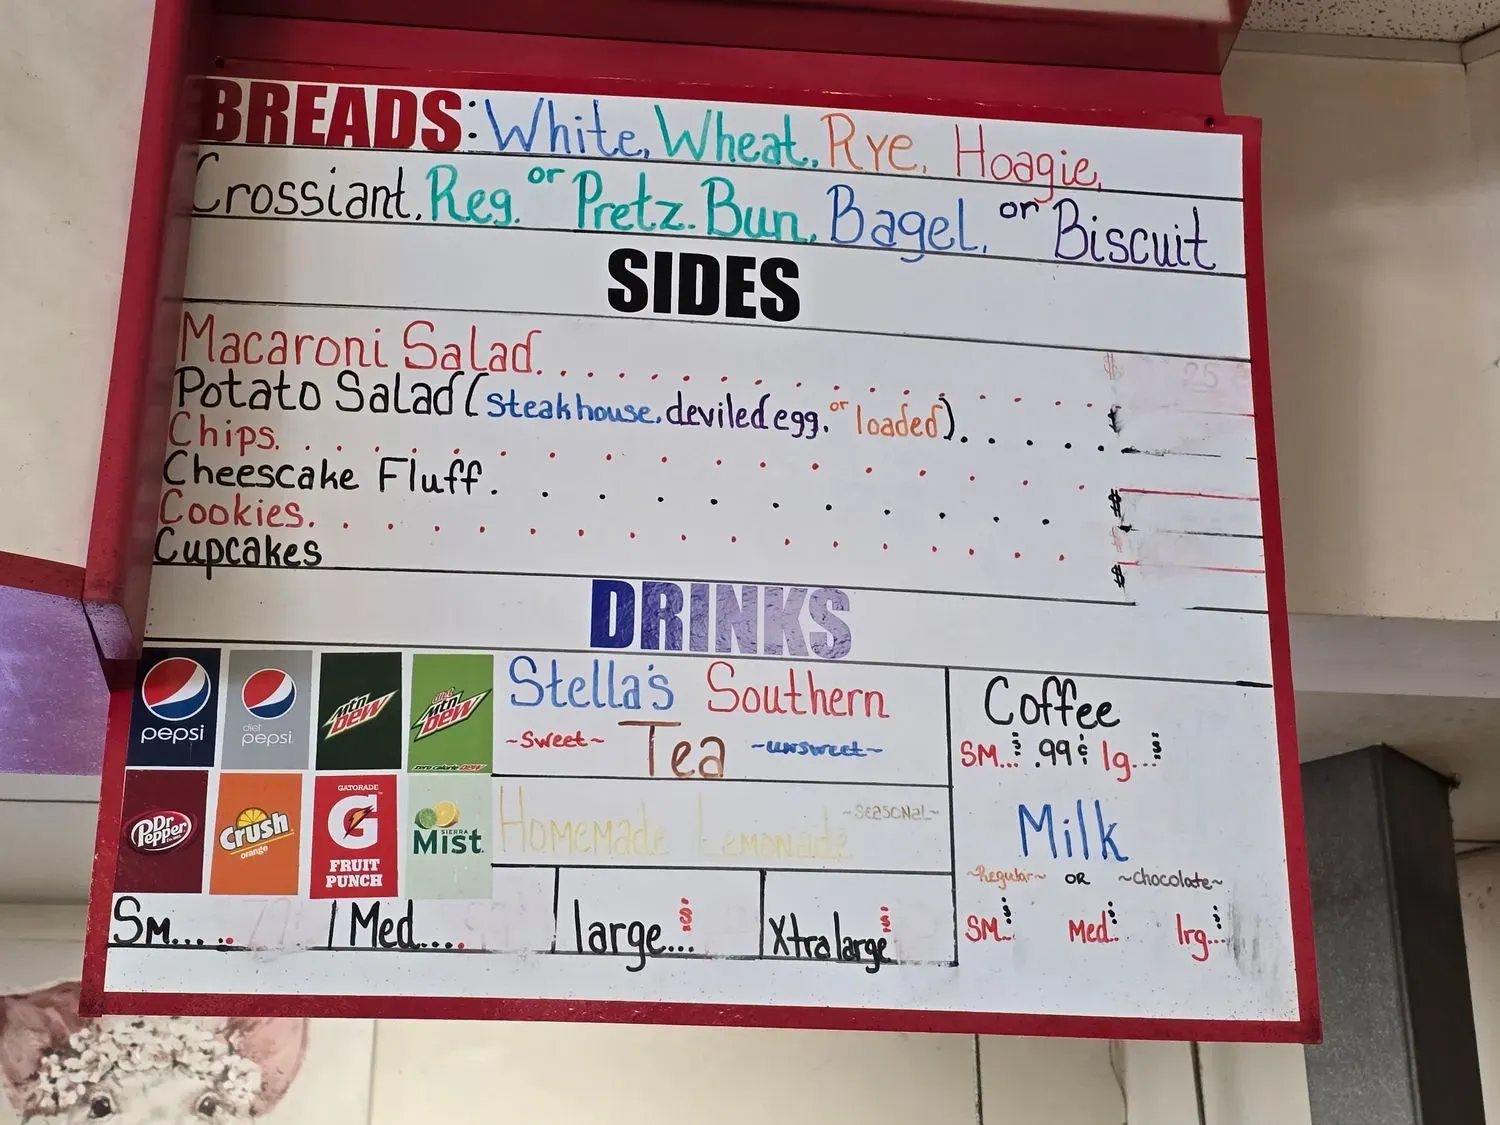 BREADS: White, Wheat, Rye, Hoagie,
Crossiant, Reg. or Pretz. Bun, Bagel, or Biscuit
SIDES
Macaroni Salad.................... $
Potato Salad (steakhouse, deviled egg, or loaded)..... $
Chips....................
Cheescake Fluff........... $
Cookies.................... $
Cupcakes $
DRINKS
pepsi
diet pepsi
Mtn DEW
diet Mtn DEW
zero calorie DEW
Stella's Southern
~Sweet~ Tea ~unsweet~
Coffee
SM...$ .99¢ lg...$
Dr Pepper
Crush
orange
GATORADE
G
FRUIT
PUNCH
SIERRA
Mist
Homemade Lemonade ~SEASONAL~
Milk
~Regular~ OR ~chocolate~
SM..$ Med..$ lrg...$
SM...... Med..... large...$ Xtra large $